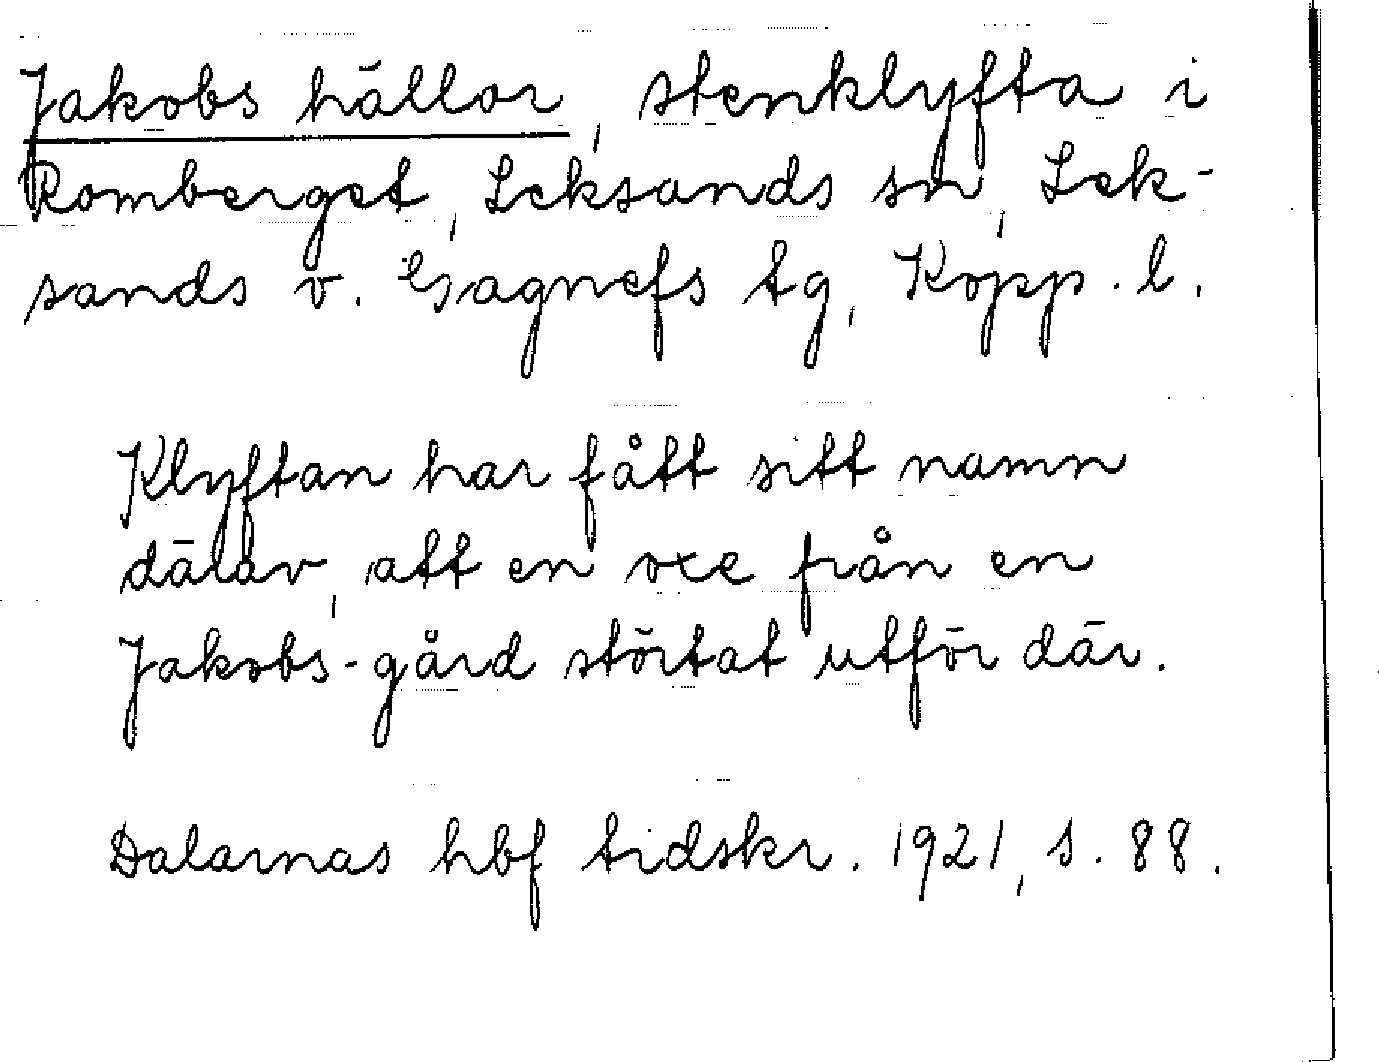 Jakobs hällor, stenklyfta i
Romberget, Leksands sn, Lek-
sands o. Gagnefs tg, Kopp. l.
Klyftan har fått sitt namn
därav, att en oxe från en
Jakobs-gård störtat utför där.
Dalarnas hbf tidskr. 1921, s. 88.